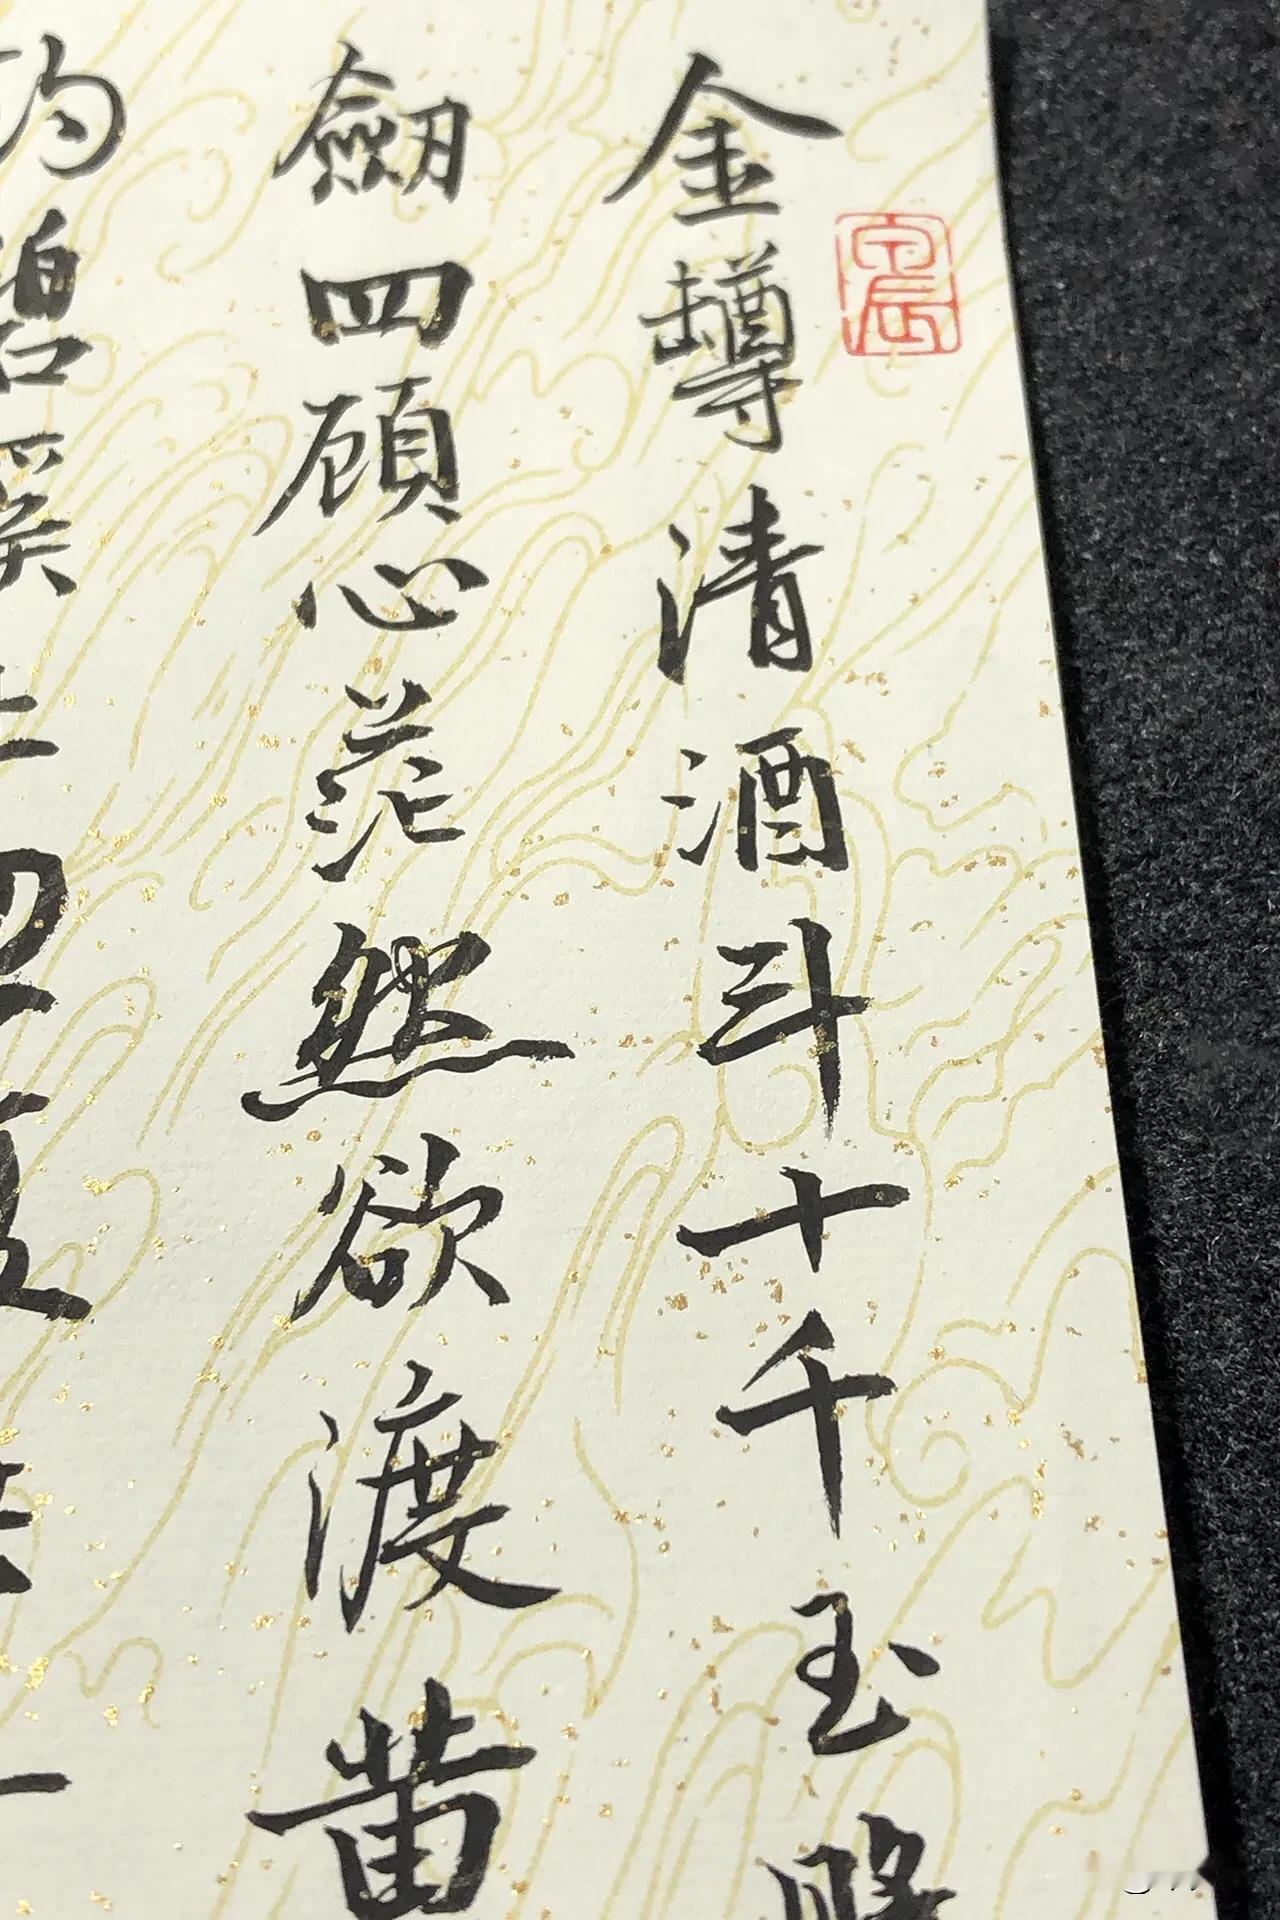 金罇清酒斗十千玉
劒四顧心茫然欲渡黄
碧溪上